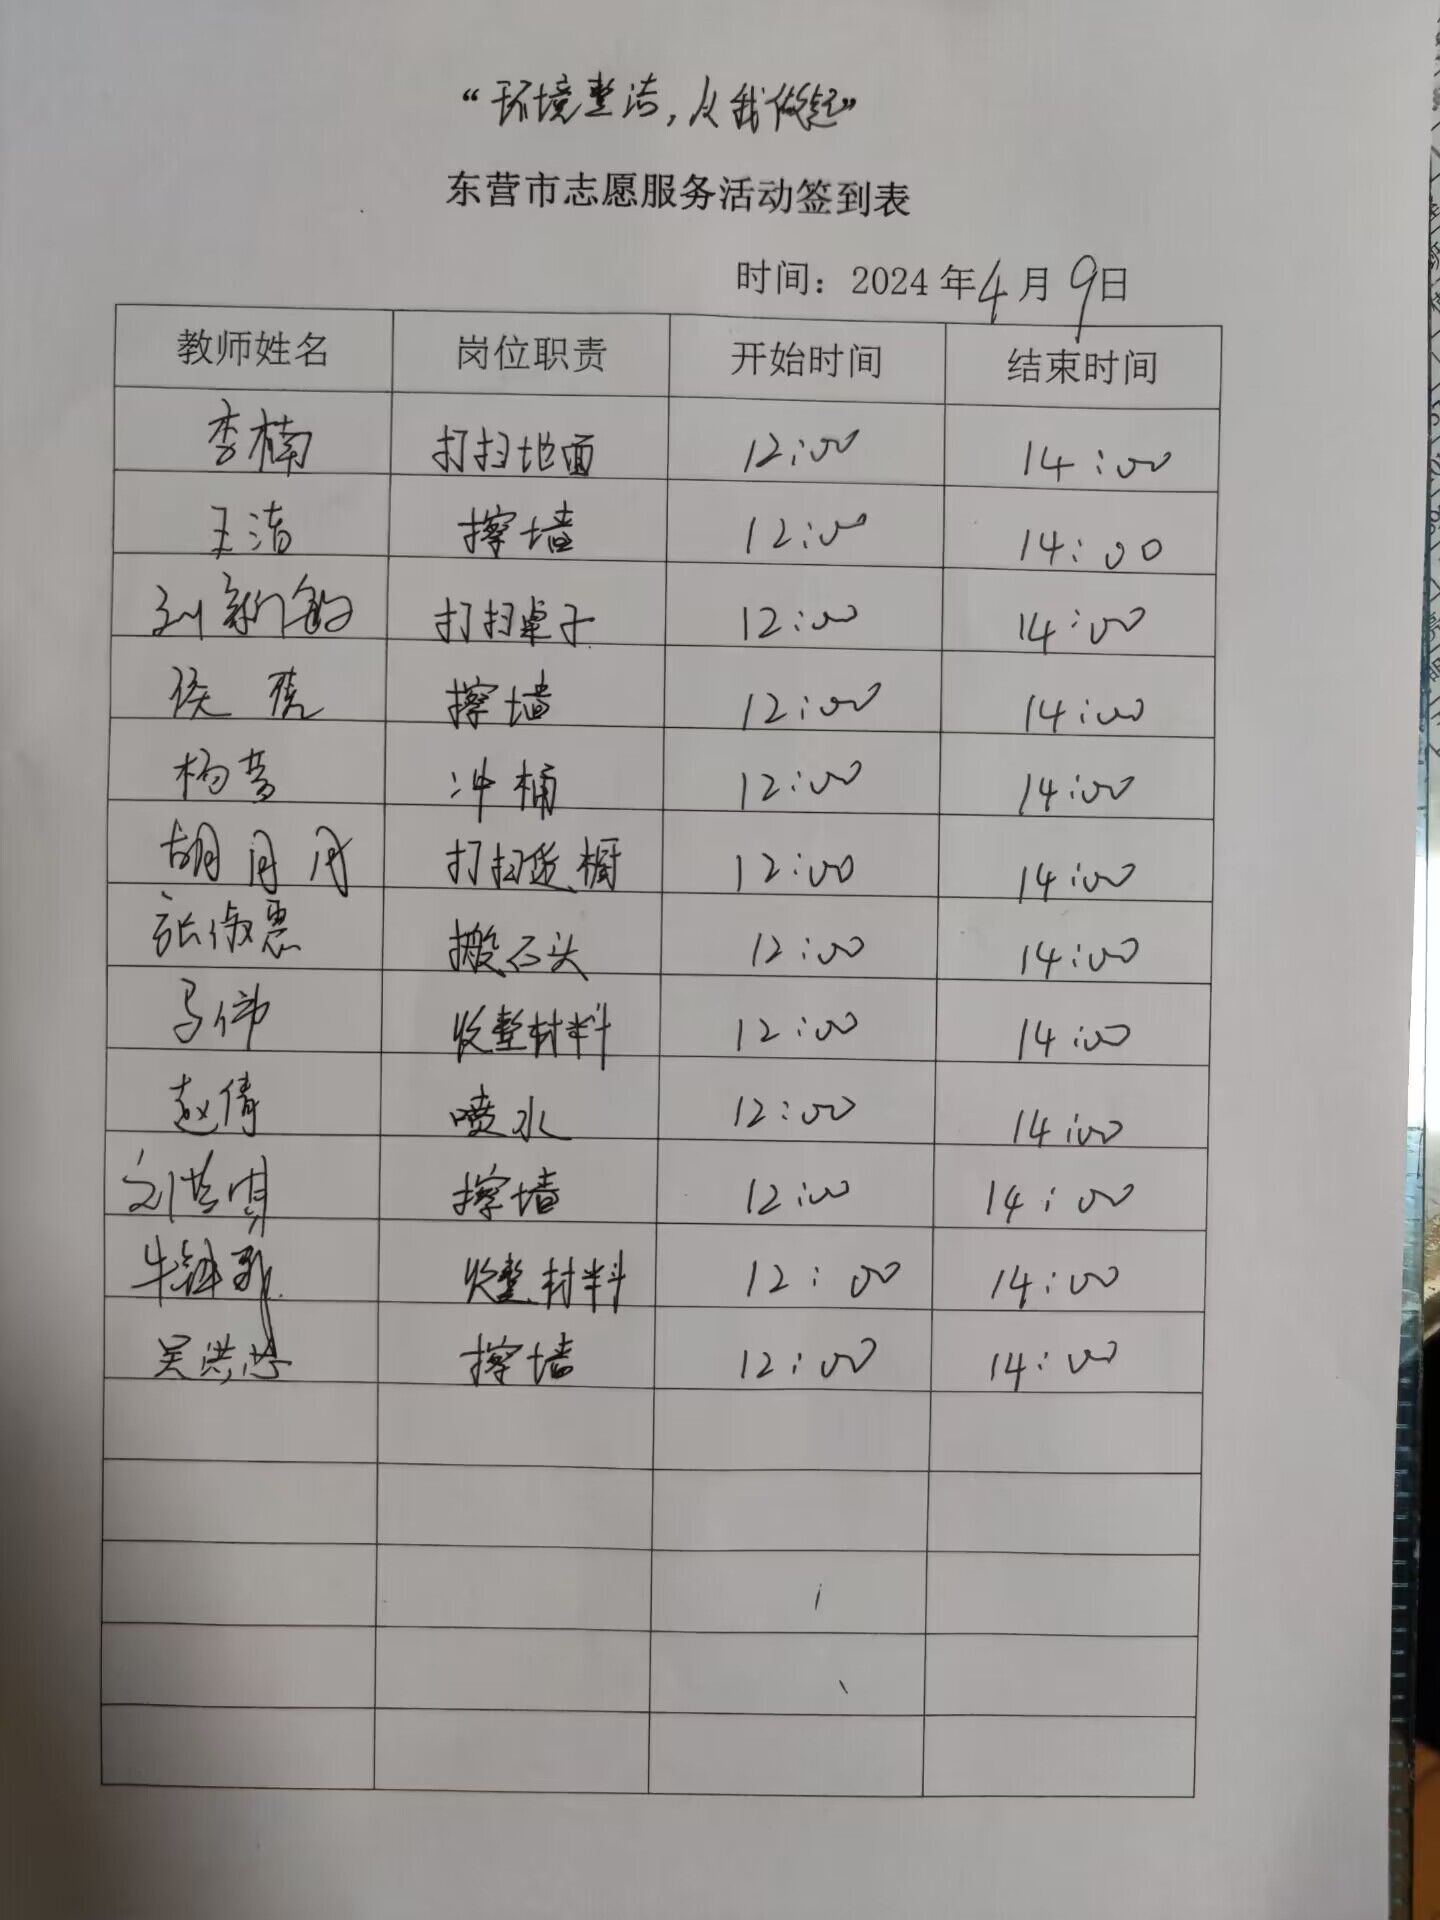 “环境整洁,从我做起”
东营市志愿服务活动签到表
时间：2024年4月9日
教师姓名 岗位职责 开始时间 结束时间
李楠 打扫地面 12:00 14:00
王洁 擦墙 12:00 14:00
打扫桌子 12:00 14:00
擦墙 12:00 14:00
冲桶 12:00 14:00
胡月月 打扫货橱 12:00 14:00
张俊惠 搬石头 12:00 14:00
马伟 收整材料 12:00 14:00
赵倩 喷水 12:00 14:00
擦墙 12:00 14:00
收整材料 12:00 14:00
擦墙 12:00 14:00